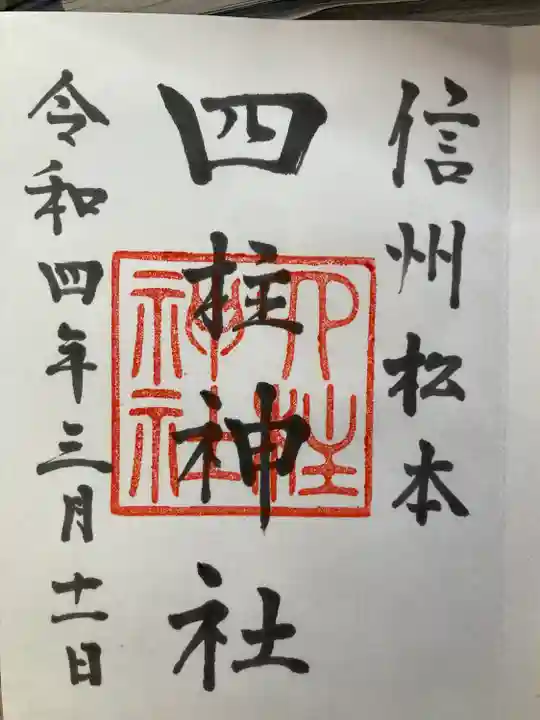 信州松本
四柱神社
四柱
神社
令和四年三月十一日